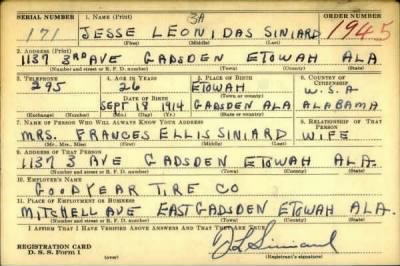 SERIAL NUMBER 1. NAME (Print) 3A ORDER NUMBER
171 JESSE LEONIDAS SINIARD 1945
(First) (Middle) (Last)
2. ADDRESS (Print)
1137 3RD AVE GADSDEN ETOWAH ALA
(Number and street or R. F. D. number) (Town) (County) (State)
3. TELEPHONE 4. AGE IN YEARS 5. PLACE OF BIRTH 6. COUNTRY OF CITIZENSHIP
295 26 ETOWAH U.S.A
DATE OF BIRTH (Town or county)
SEPT 18 1914 GADSDEN ALA ALABAMA
(Exchange) (Number) (Mo.) (Day) (Yr.) (State or country)
7. NAME OF PERSON WHO WILL ALWAYS KNOW YOUR ADDRESS 8. RELATIONSHIP OF THAT PERSON
MRS. FRANCES ELLIS SINIARD WIFE
(Mr., Mrs., Miss) (First) (Middle) (Last)
9. ADDRESS OF THAT PERSON
1137 3 AVE GADSDEN ETOWAH ALA.
(Number and street or R. F. D. number) (Town) (County) (State)
10. EMPLOYER'S NAME
GOODYEAR TIRE CO
11. PLACE OF EMPLOYMENT OR BUSINESS
MITCHELL AVE EAST GADSDEN ETOWAH ALA.
(Number and street or R. F. D. number) (Town) (County) (State)
I AFFIRM THAT I HAVE VERIFIED ABOVE ANSWERS AND THAT THEY ARE TRUE.
REGISTRATION CARD
D. S. S. Form 1 J L Siniard
(Registrant's signature)